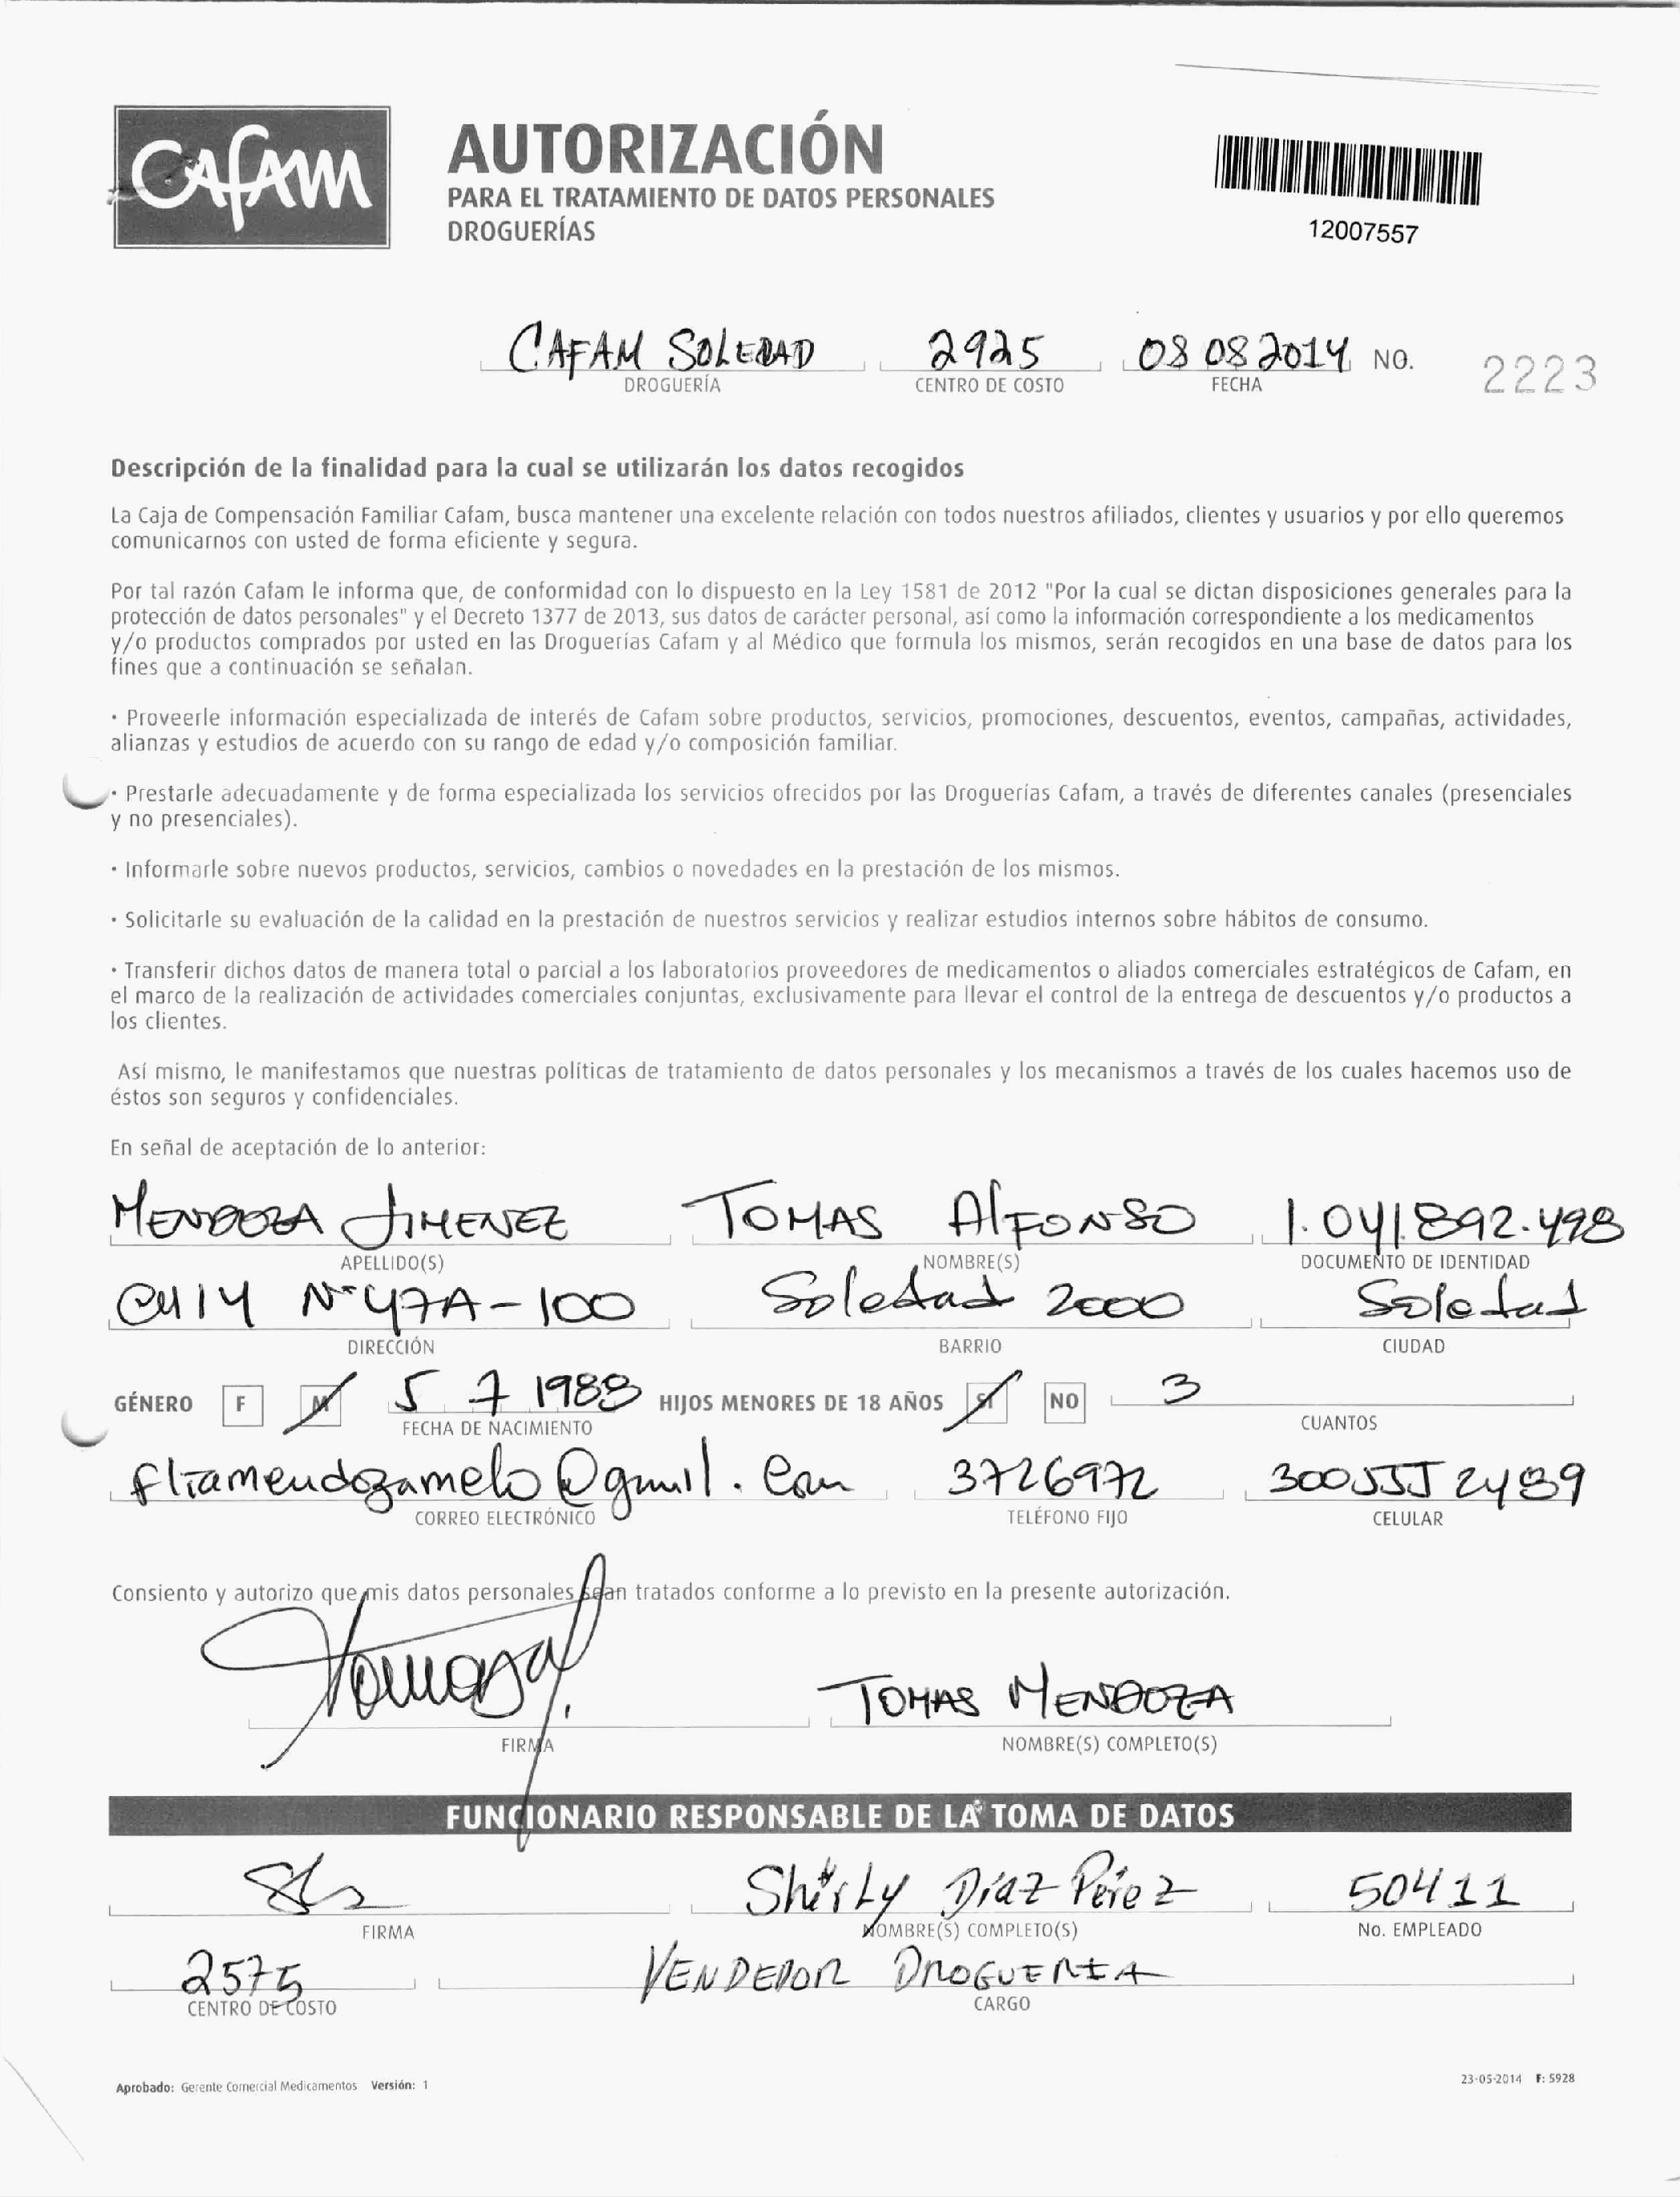 Cafam
AUTORIZACIÓN
PARA EL TRATAMIENTO DE DATOS PERSONALES
DROGUERÍAS
12007557
CAFAM SOLEDAD 2925 08 08 2014 NO. 2223
DROGUERÍA CENTRO DE COSTO FECHA
Descripción de la finalidad para la cual se utilizarán los datos recogidos
La Caja de Compensación Familiar Cafam, busca mantener una excelente relación con todos nuestros afiliados, clientes y usuarios y por ello queremos
comunicarnos con usted de forma eficiente y segura.
Por tal razón Cafam le informa que, de conformidad con lo dispuesto en la Ley 1581 de 2012 "Por la cual se dictan disposiciones generales para la
protección de datos personales" y el Decreto 1377 de 2013, sus datos de carácter personal, así como la información correspondiente a los medicamentos
y/o productos comprados por usted en las Droguerías Cafam y al Médico que formula los mismos, serán recogidos en una base de datos para los
fines que a continuación se señalan.
• Proveerle información especializada de interés de Cafam sobre productos, servicios, promociones, descuentos, eventos, campañas, actividades,
alianzas y estudios de acuerdo con su rango de edad y/o composición familiar.
• Prestarle adecuadamente y de forma especializada los servicios ofrecidos por las Droguerías Cafam, a través de diferentes canales (presenciales
y no presenciales).
• Informarle sobre nuevos productos, servicios, cambios o novedades en la prestación de los mismos.
• Solicitarle su evaluación de la calidad en la prestación de nuestros servicios y realizar estudios internos sobre hábitos de consumo.
• Transferir dichos datos de manera total o parcial a los laboratorios proveedores de medicamentos o aliados comerciales estratégicos de Cafam, en
el marco de la realización de actividades comerciales conjuntas, exclusivamente para llevar el control de la entrega de descuentos y/o productos a
los clientes.
Así mismo, le manifestamos que nuestras políticas de tratamiento de datos personales y los mecanismos a través de los cuales hacemos uso de
éstos son seguros y confidenciales.
En señal de aceptación de lo anterior:
MENDOZA JIMENEZ TOMAS AlFONSO 1.041.892.498
APELLIDO(S) NOMBRE(S) DOCUMENTO DE IDENTIDAD
Cll 14 N° 47A-100 Soledad 2000 Soledad
DIRECCIÓN BARRIO CIUDAD
GÉNERO F M 5 7 1988 HIJOS MENORES DE 18 AÑOS SI NO 3
FECHA DE NACIMIENTO CUANTOS
fliamendozamelo@gmil.com 3726972 300555 2489
CORREO ELECTRÓNICO TELÉFONO FIJO CELULAR
Consiento y autorizo que mis datos personales sean tratados conforme a lo previsto en la presente autorización.
TOMAS MENDOZA
FIRMA NOMBRE(S) COMPLETO(S)
FUNCIONARIO RESPONSABLE DE LA TOMA DE DATOS
Shirly Diaz Perez 50411
FIRMA NOMBRE(S) COMPLETO(S) No. EMPLEADO
2575 VENDEDOR DROGUERIA
CENTRO DE COSTO CARGO
Aprobado: Gerente Comercial Medicamentos Versión: 1 23-05-2014 F: 5928